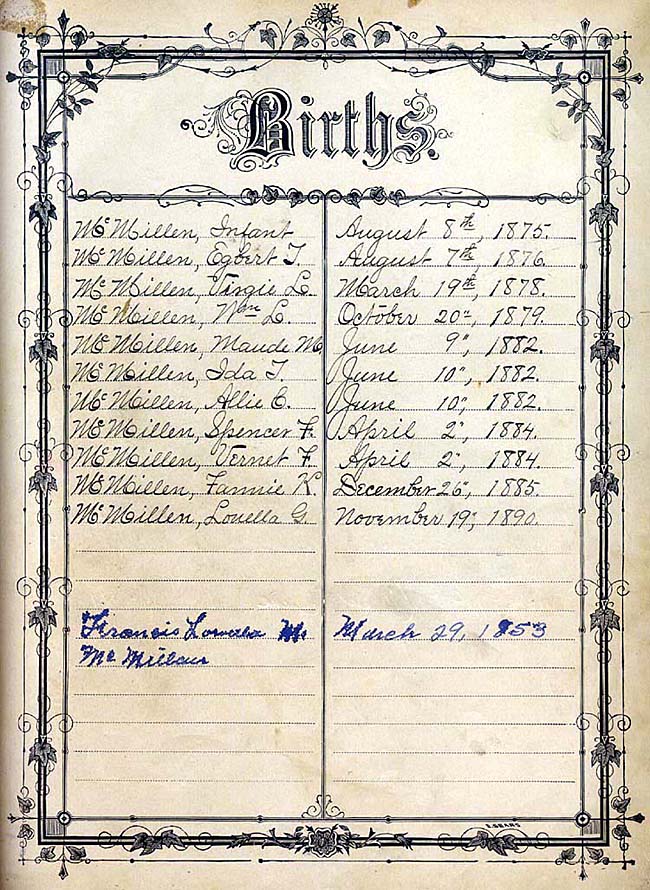 Births.
McMillen, Infant August 8th, 1875.
McMillen, Egbert T. August 7th, 1876.
McMillen, Virgie L. March 19th, 1878.
McMillen, Wm L. October 20", 1879.
McMillen, Maude M, June 9", 1882.
McMillen, Ida T. June 10", 1882.
McMillen, Allie C. June 10", 1882.
McMillen, Spencer F. April 2", 1884.
McMillen, Vernet F. April 2", 1884.
McMillen, Fannie K. December 26", 1885.
McMillen, Louella G. November 19", 1890.
Francis March 29, 1853
Mc Millan
S. SEARS